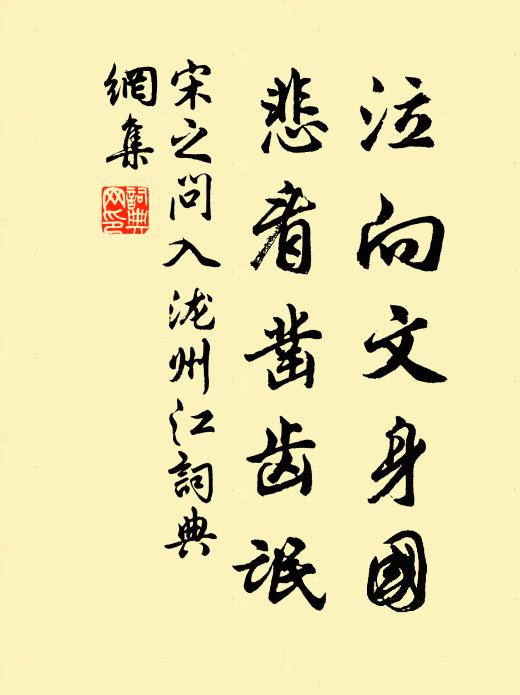 泣向文身國
悲看凿齿氓
宋之问入泷州江詞典
網集
詞典
网印